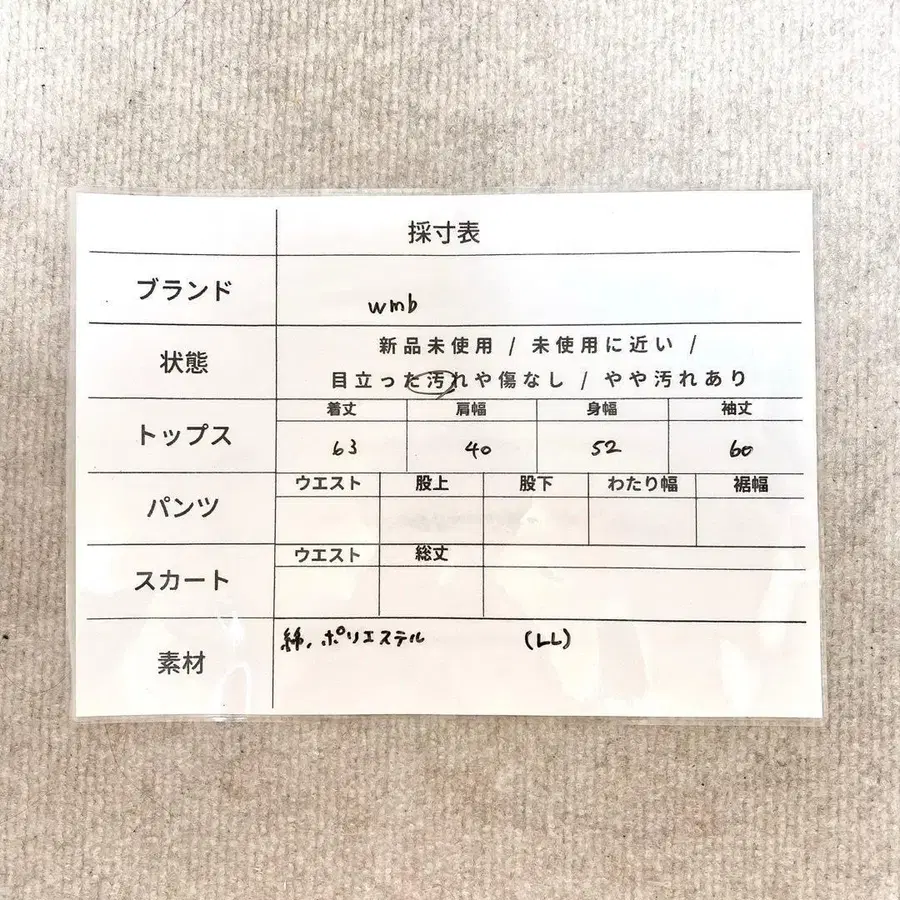 採寸表
ブランド
wmb
状態
新品未使用 / 未使用に近い /
目立った汚れや傷なし / やや汚れあり
トップス
着丈 肩幅 身幅 袖丈
63 40 52 60
パンツ
ウエスト 股上 股下 わたり幅 裾幅
スカート
ウエスト 総丈
素材
綿,ポリエステル (LL)